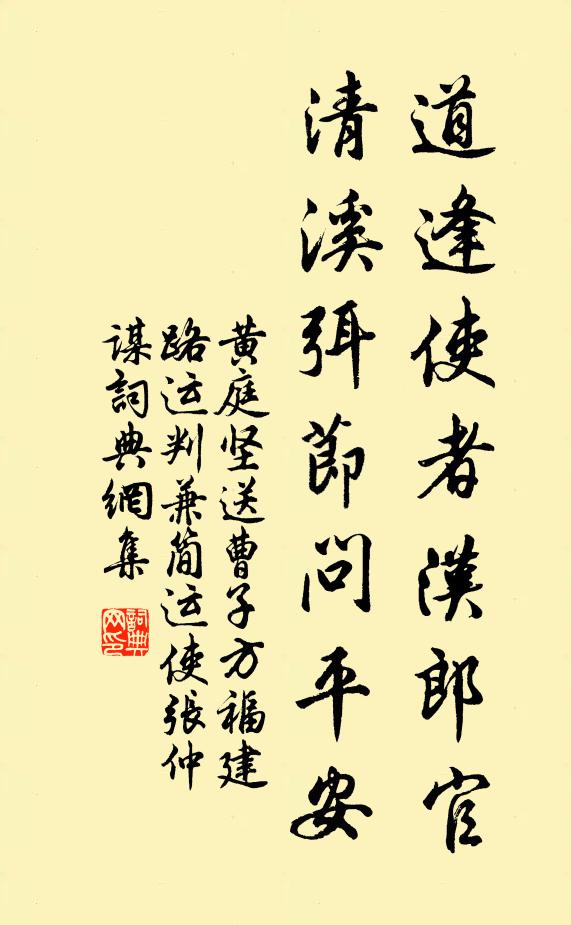 道逢使者漢郎官
清溪弭節問平安
黄庭坚送曹子方福建
路运判兼简运使張仲
谋詞典網集
詞典
网印